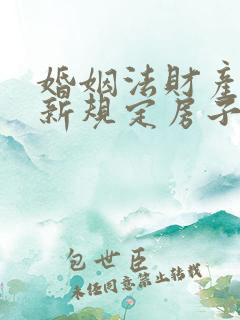 婚姻法財產
新規定房子
包世臣
未经同意禁止转载